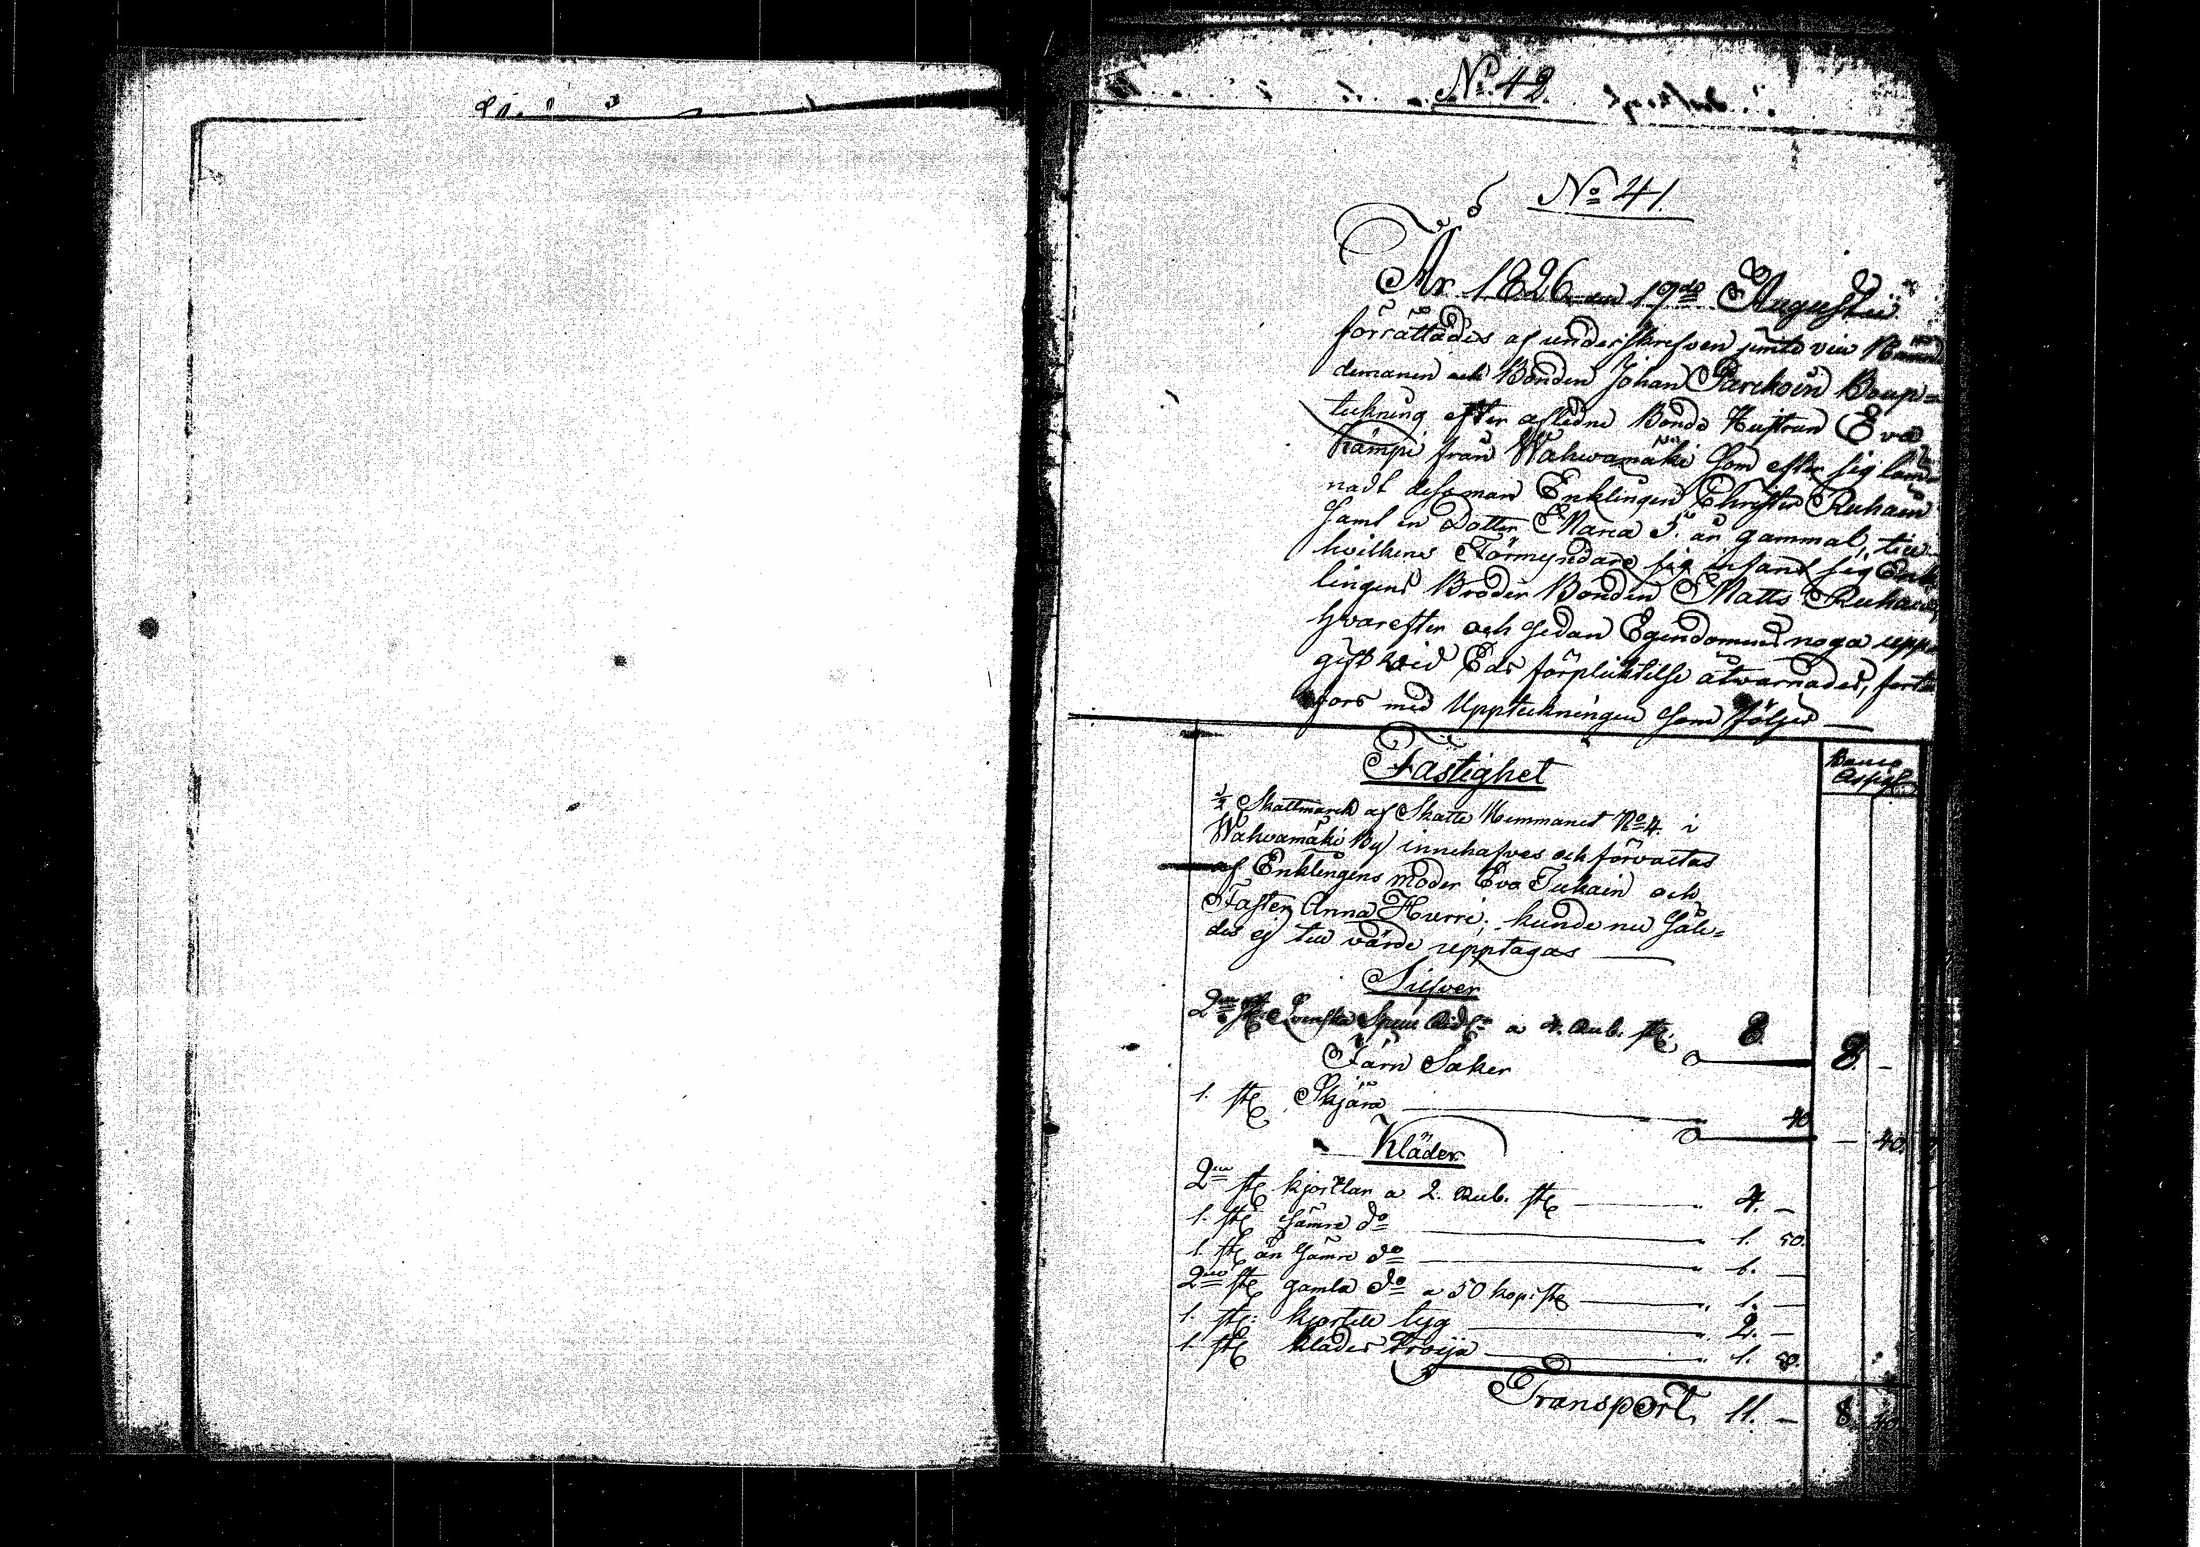 No. 42.
No 41.
År 1826 den 19de Augustii
förrättades af underskrefven jemte vice
demanen och Bonden Johan Parckoin Boup=
teckning efter aflidne Bonde Hustrun Eva
Kämpi från Wahwamäki Som efter sig lem=
nadt dess man Enklingen Christer Ruhain
Samt en Dotter Maria 5. år gammal, till
hvilkens Förmyndare sig infant sig Enk
lingens Broder Bonden Matts Ruhain
hvarefter och sedan Egendomen noga upp
gifvas vid Eds förplicktelse åtwarnades, fort
fors med Uppteckningen Som följer
Fastighet
Banco
Assign:
1/2 Skattmarck af Skatte Hemmanet No 4. i
Wahwamäki By innehafves och förvaltas
af Enklingens moder Eva Tuhain och
Faster Anna Hurri, kunde nu Såle=
des ej till värde upptagas
Silfver
2ne st: Svenska Specie Rid. a 4. Rub. st: 8
8. -
Järn Saker
1. st: Skjära 40
- 40.
Kläder
2ne st: kjortlar a 2. Rub. st: " 4. -
1. st: sämre do " 1. 50.
1. st: än sämre do " 1. -
2ne st: gamla do a 50 kop: st: " 1. -
1. st: kjortell tyg " 2. -
1. st: kläder tröija " 1. 50.
Transport, 11. - 8. 40.